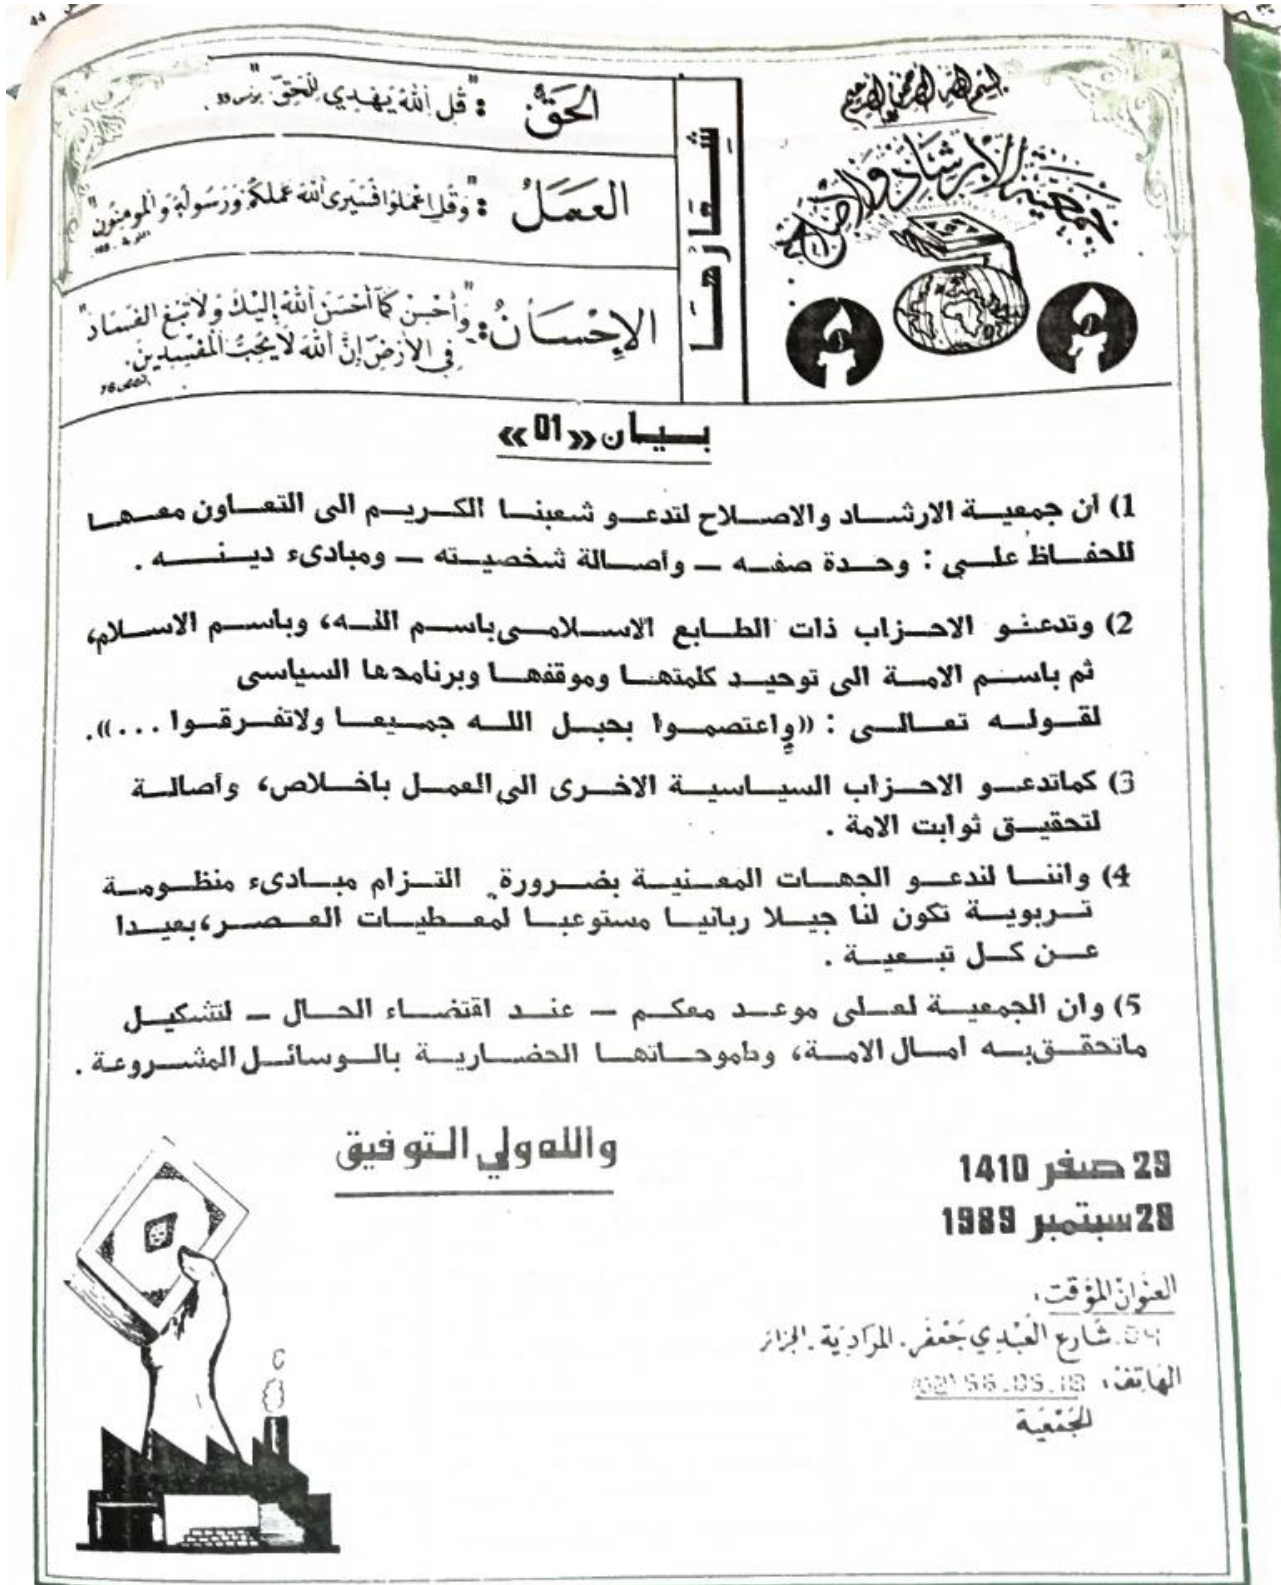 بسم الله الرحمن الرحيم
جمعية الإرشاد والإصلاح
شعارها
الحَقّ : "قُلِ اللَّهُ يَهْدِي لِلْحَقِّ" يونس 35.
العَمَلُ : "وَقُلِ اعْمَلُوا فَسَيَرَى اللَّهُ عَمَلَكُمْ وَرَسُولُهُ وَالْمُومِنُونَ"
الإِحْسَانُ : "وَأَحْسِنْ كَمَا أَحْسَنَ اللَّهُ إِلَيْكَ وَلَا تَبْغِ الْفَسَادَ"
فِي الْأَرْضِ إِنَّ اللَّهَ لَا يُحِبُّ الْمُفْسِدِينَ.
القصص 76
بيان «01»
1) ان جمعية الارشاد والاصلاح لتدعو شعبنا الكريم الى التعاون معها
للحفاظ على : وحدة صفه – وأصالة شخصيته – ومبادىء دينه .
2) وتدعو الاحزاب ذات الطابع الاسلامي باسم الله، وباسم الاسلام،
ثم باسم الامة الى توحيد كلمتها وموقفها وبرنامجها السياسى
لقوله تعالى : ((واعتصموا بحبل الله جميعا ولاتفرقوا ...)).
3) كماتدعو الاحزاب السياسية الاخرى الى العمل باخلاص، وأصالة
لتحقيق ثوابت الامة .
4) واننا لندعو الجهات المعنية بضرورة التزام مبادىء منظومة
تربوية تكون لنا جيلا ربانيا مستوعبا لمعطيات العصر، بعيدا
عن كل تبعية .
5) وان الجمعية لعلى موعد معكم – عند اقتضاء الحال – لتشكيل
ماتحقق به امال الامة، وطموحاتها الحضارية بالوسائل المشروعة .
والله ولي التوفيق
29 صفر 1410
28 سبتمبر 1989
العنوان المؤقت:
04. شارع العَبْدِي جَعْفَر. المرَادِيَة. الجزائر
الهاتف: 56.05.18
الجَمْعِيَة